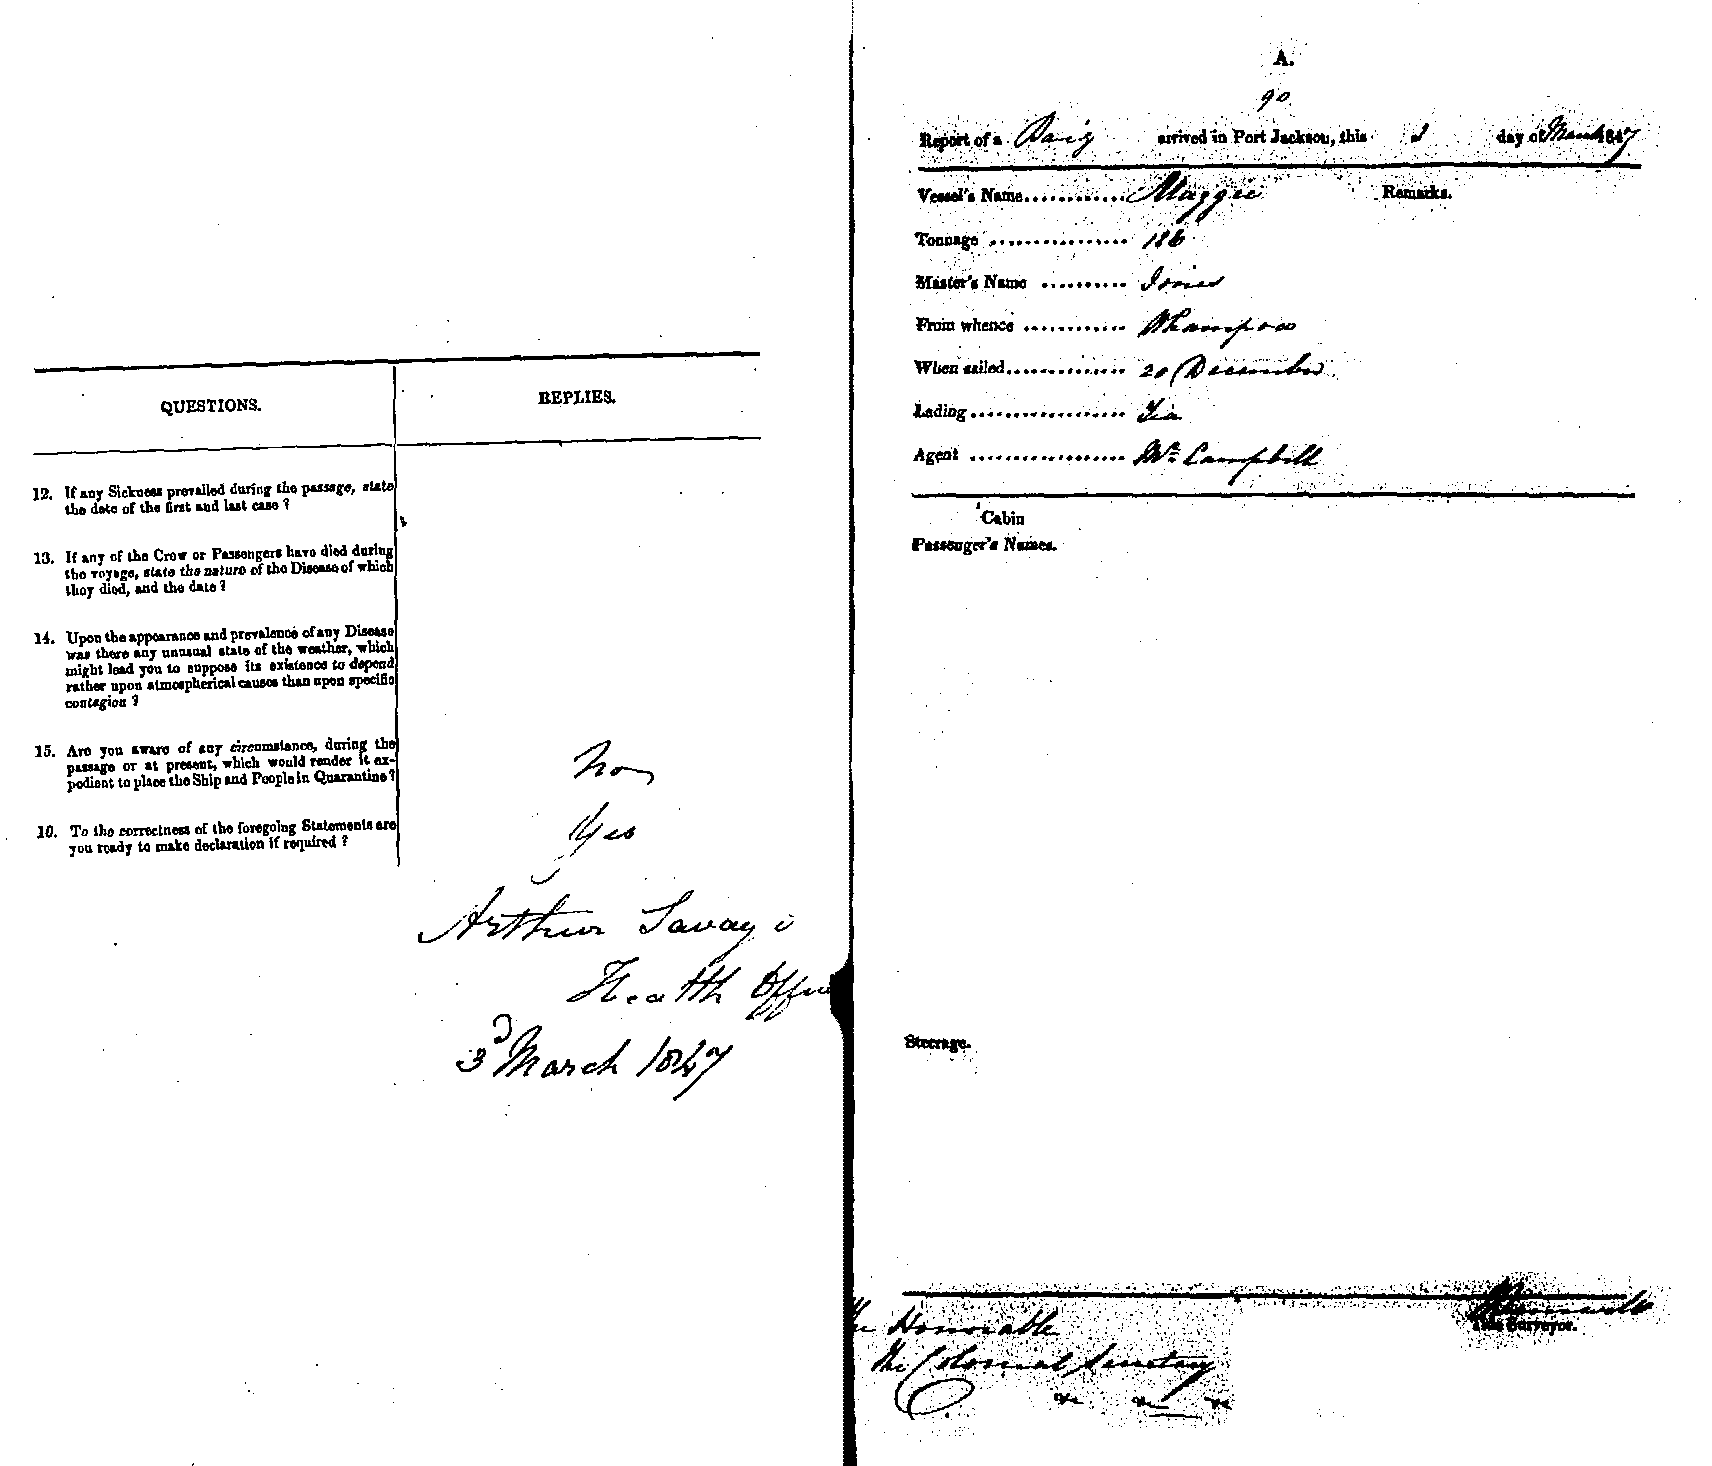 QUESTIONS.
REPLIES.
12. If any Sickness prevailed during the passage, state
the date of the first and last case ?
13. If any of the Crew or Passengers have died during
the voyage, state the nature of the Disease of which
they died, and the date ?
14. Upon the appearance and prevalence of any Disease
was there any unusual state of the weather, which
might lead you to suppose its existence to depend
rather upon atmospherical causes than upon specific
contagion ?
15. Are you aware of any circumstance, during the
passage or at present, which would render it ex-
pedient to place the Ship and People in Quarantine ?
No
16. To the correctness of the foregoing Statements are
you ready to make declaration if required ?
Yes
Arthur Savage
Health Officer
3d March 1847
A.
90
Report of a Brig arrived in Port Jackson, this 3 day of March 1847
Vessel's Name............ Maggie
Remarks.
Tonnage ................ 186
Master's Name .......... Jones
From whence ............ Whampoa
When sailed.............. 20 December
Lading.................. Tea
Agent .................. Mr Campbell
Cabin
Passenger's Names.
Steerage.
Tide Surveyor.
The Honorable
The Colonial Secretary
&c &c &c